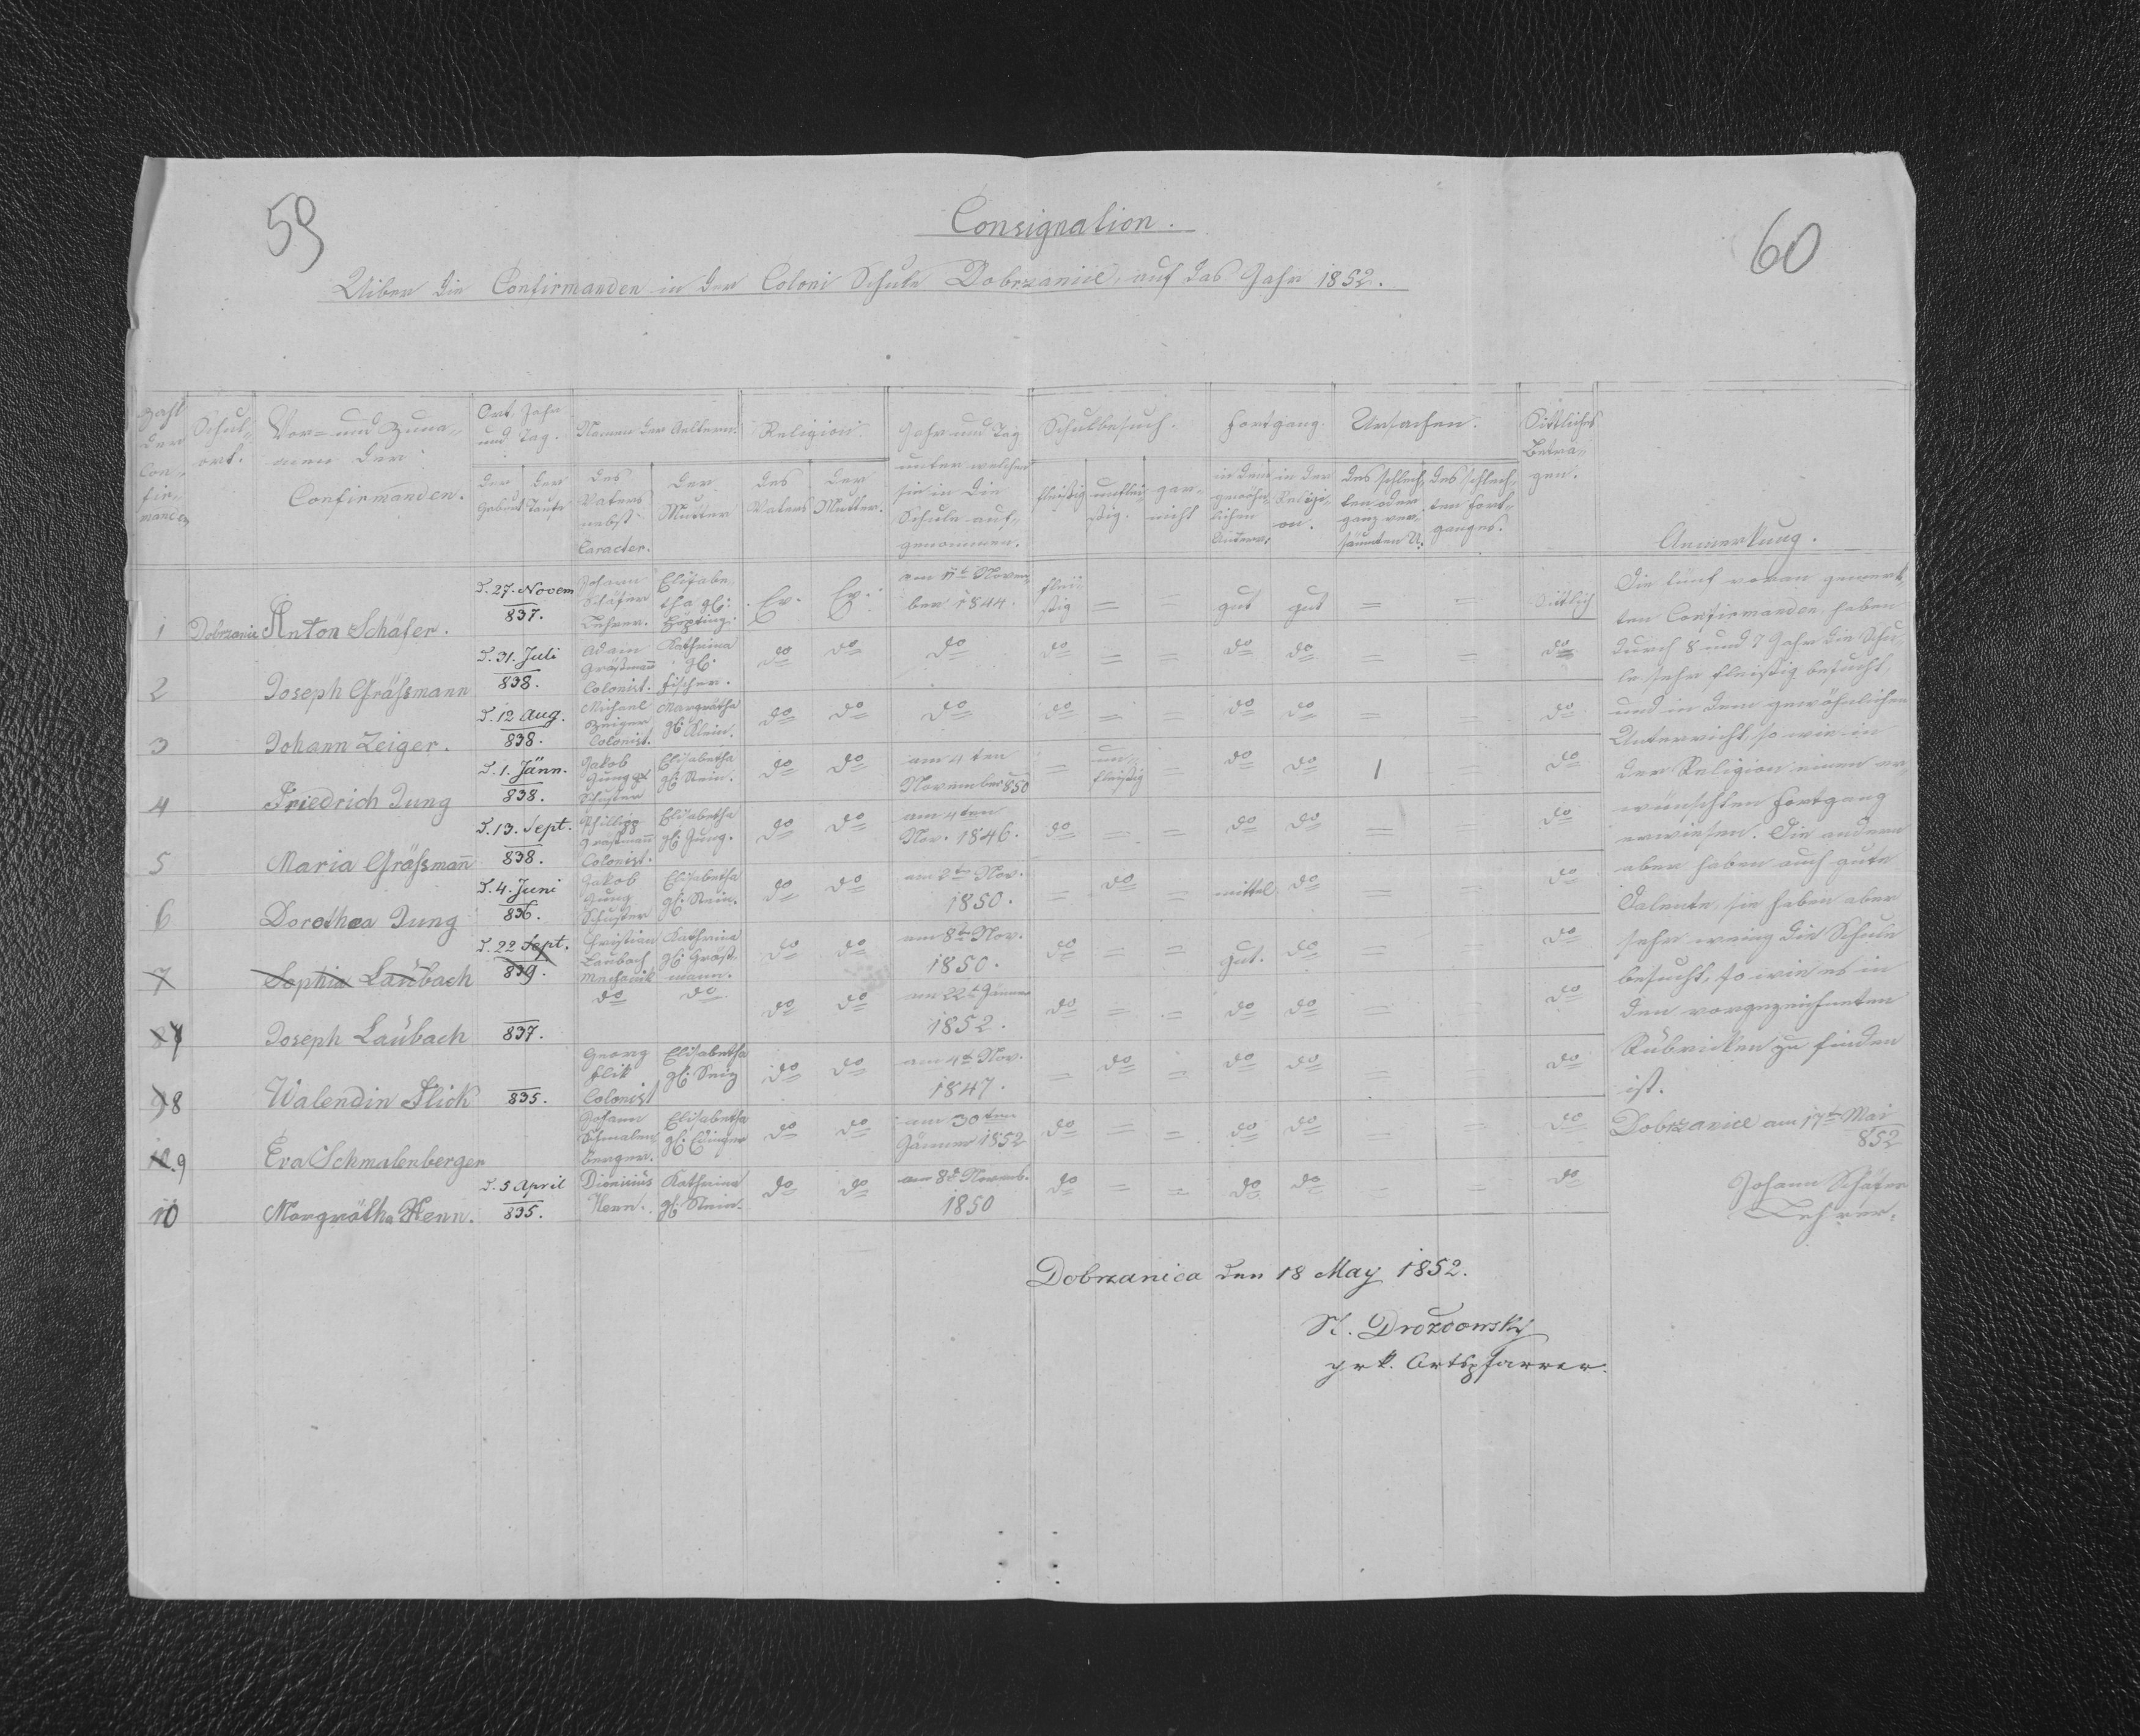 59
60
Consignation.
Uiber die Confirmanden in der Coloni Schule Dobrzanice, auf das Jahr 1852.
Zahl der Con- fir- manden
Schul- ort.
Vor- und Zuna- men der Confirmanden.
Ort, Jahr und Tag. der Geburt der Taufe
Namen der Aeltern. des Vaters nebst Caracter. der Mutter
Religion des Vaters der Mutter.
Jahr und Tag unter welchen sie in die Schule auf- genommen.
Schulbesuch. fleißig unflei- ßig. gar- nicht
Fortgang. in dem gewöhn- lichen Unterr. in der Religi- on.
Ursachen. des schlech- ten oder ganz ver- säumten U. des schlech- ten Fort- ganges.
Sittliches Betra- gen.
Anmerkung.
1 Dobrzanice Anton Schäfer. d. 27. Novem 837. Johann Schäfer Lehrer. Elisabe- tha gb: Ev. Ev. November 1844. fleis- sig = = gut gut = = Sittlich
2 Joseph Gräßmann d. 31. Juli 838. Adam Graßmann Colonist. Kathrina gb. Fischer. do do do do = = do do = = do
3 Johann Zeiger. d. 12 Aug. 838. Michael Zeiger Colonist. Margrätha gb. Klein. do do do do = = do do = = do
4 Friedrich Jung d. 1. Jänn. 838. Jakob Jung Schuster Elisabetha gb. Stein. do do am 4 ten November 850 = un- fleißig = do do 1 = do
5 Maria Gräßmañ d. 13. Sept. 838. Phillipp Graßmañ Colonist. Elisabetha gb. Jung. do do am 4ten Nov. 1846. do = = do do = = do
6 Dorothea Jung d. 4. Juni 836. Jakob Jung Schuster Elisabetha gb. Stein. do do am 8ten Nov. 1850. = do = mittel do = = do
7 Sophia Laubach d. 22 Sept. 839. Christian Laubach Mechanik Kathrina gb. Gräß- mann. do do am 8t Nov. 1850. do = = gut. do = = do
8 7 Joseph Laubach 837. do do do do am 22t Jänner 1852. do = = do do = = do
9 8 Walendin Flick 835. Georg Flik Colonist Elisabetha gb. do do am 4t Nov. 1847. = do = do do = = do
10. 9 Eva Schmalenberger Johann Schmalen- berger. Elisabetha gb. Edinger do do am 30ten Jänner 1852 do = = do do = = do
10 Margrätha Henn. d. 5 April 835. Dionisius Henn. Kathrina gb. Stein. do do am 8t Novemb. 1850 do = = do do = = do
Die fünf voran gemerk-
ten Confirmanden haben
durch 8 und 7 Jahr die Schu-
le sehr fleißig besucht,
und in dem gewöhnlichen
Unterricht, so wie in
der Religion einen er-
wünschten Fortgang
erwiesen. Die andern
aber haben auch gute
Talente, sie haben aber
sehr wenig die Schule
besucht, so wie es in
den vorgezeichneten
Rubricken zu finden
ist.
Dobrzanice am 17t Mai
852
Johann Schäfer
Lehrer.
Dobrzanica den 18 May 1852.
Drozdowsky
grk. Ortspfarrer.